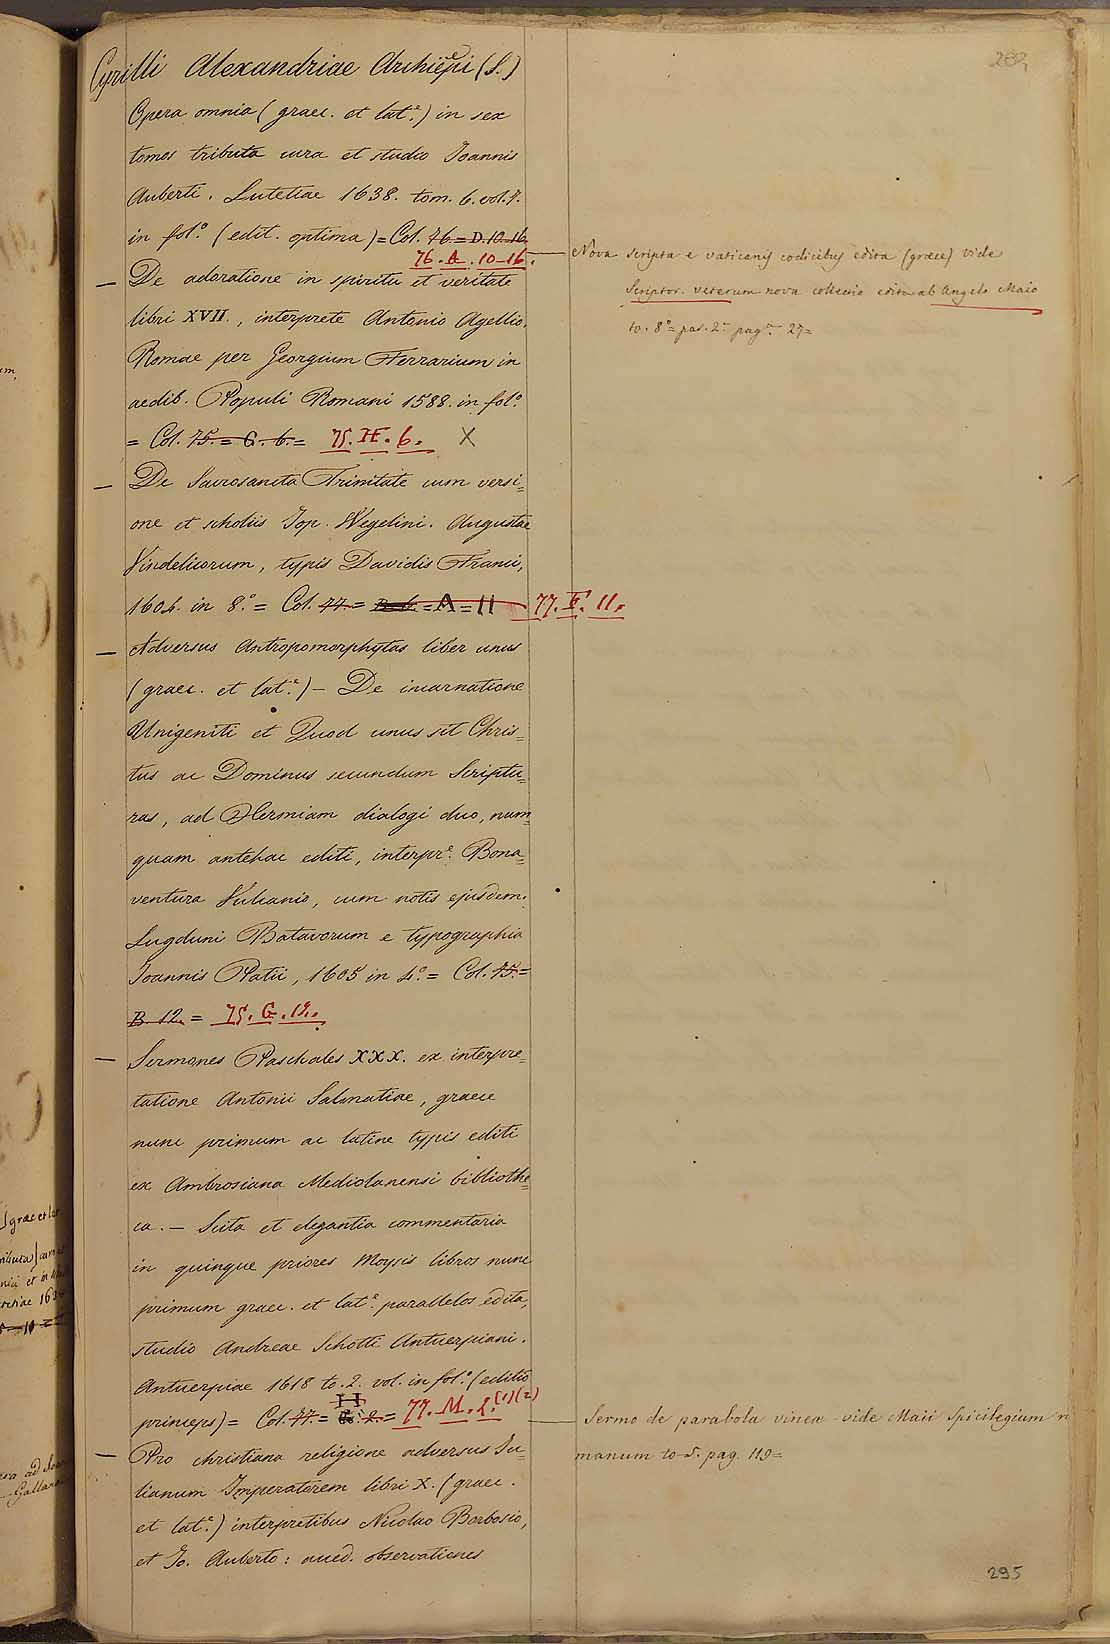 Cyrilli Alexandriae Archiepi (S.)
Opera omnia (graec. et lat.e) in sex
tomos tributa cura et studio Joannis
Auberti. Lutetiae 1638. tom. 6. vol. 7.
in fol.o (edit. optima) = Col. 76 = D. 10. 16
76. A. 10-16.
— De adoratione in spiritu et veritate
libri XVII., interprete Antonio Agellio.
Romae per Georgium Ferrarium in
aedib. Populi Romani 1588. in fol.o
= Col. 75. = G. 6. = 75. H. 6. X
— De Sacrosancta Trinitate cum versi=
one et scholiis Jop. Wegelini. Augustae
Vindelicorum, typis Davidis Franci,
1604. in 8.o = Col. 77. = = A = 11 77. F. 11.
— Adversus Antropomorphytas liber unus
(graec. et lat.e) — De incarnatione
Unigeniti et Quod unus sit Chris=
tus ac Dominus secundum Scriptu=
ras, ad Hermiam dialogi duo, num=
quam antehac editi, interpr.e Bona=
ventura Vulcanio, cum notis ejusdem.
Lugduni Batavorum e typographia
Joannis Patii, 1605 in 4.o = Col. 75. =
B. 12. = 75. G. 12.
— Sermones Paschales XXX. ex interpre=
tatione Antonii Salmatiae, graece
nunc primum ac latine typis editi
ex Ambrosiana Mediolanensi bibliothe=
ca. — Scita et elegantia commentaria
in quinque priores Moysis libros nunc
primum graec. et lat.e parallelos edita,
studio Andreae Schotti Antuerpiani.
Antuerpiae 1618 to. 2. vol. in fol.o (editio
H
princeps) = Col. 77. = G. 2. = 77. M. 2. (1)(2)
— Pro christiana religione adversus Ju=
lianum Imperatorem libri X. (graec.
et lat.e) interpretibus Nicolao Borbosio,
et Jo. Auberto: acced. observationes
Nova scripta e vaticanis codicibus edita (graece) vide
Scriptor. veterum nova collectio edita ab Angelo Maio
to. 8.o = par. 2.a pag.a 27 =
Sermo de parabola vineae vide Maii Spicilegium
manum to. 5. pag. 119 =
295